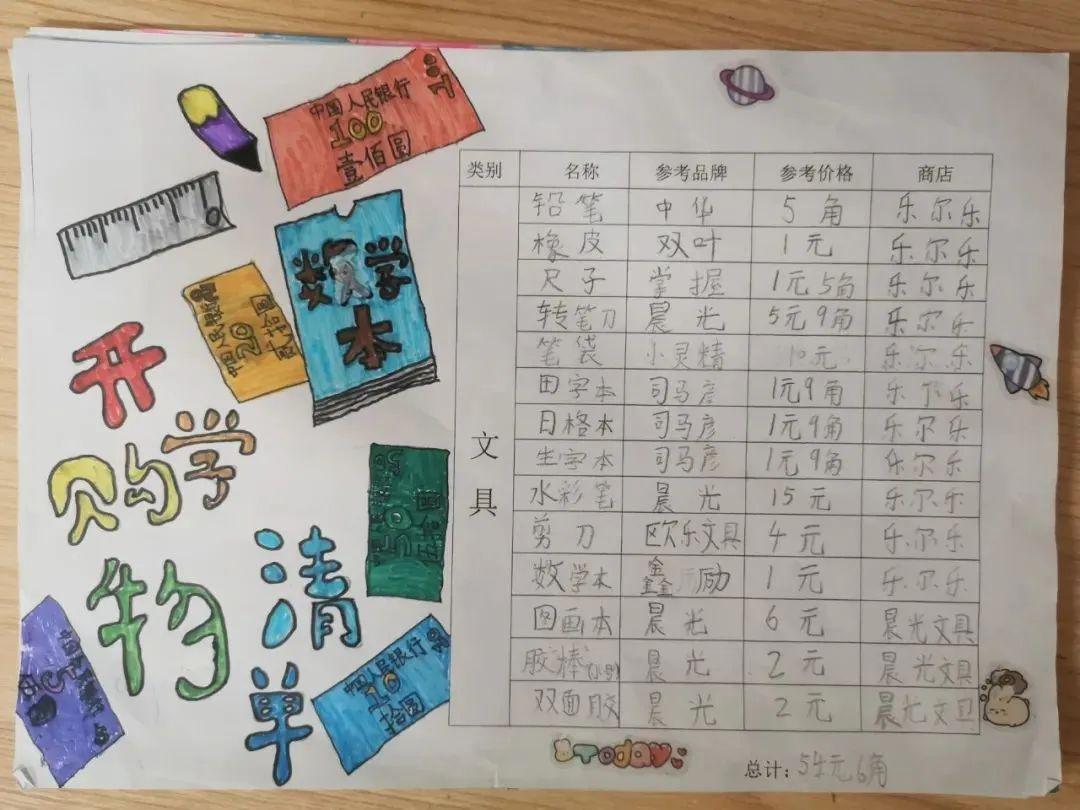 中国人民银行
100
壹佰圆
数学
本
20
开
学
购
物
清
单
50
中国人民银行
10
拾圆
类别 名称 参考品牌 参考价格 商店
文具
铅笔 中华 5角 乐尔乐
橡皮 双叶 1元 乐尔乐
尺子 掌握 1元5角 乐尔乐
转笔刀 晨光 5元9角 乐尔乐
笔袋 小灵精 10元 乐尔乐
田字本 司马彦 1元9角 乐尔乐
日格本 司马彦 1元9角 乐尔乐
生字本 司马彦 1元9角 乐尔乐
水彩笔 晨光 15元 乐尔乐
剪刀 欧乐文具 4元 乐尔乐
数学本 鑫励 1元 乐尔乐
图画本 晨光 6元 晨光文具
胶棒(小号) 晨光 2元 晨光文具
双面胶 晨光 2元 晨光文具
TODAY
总计：54元6角